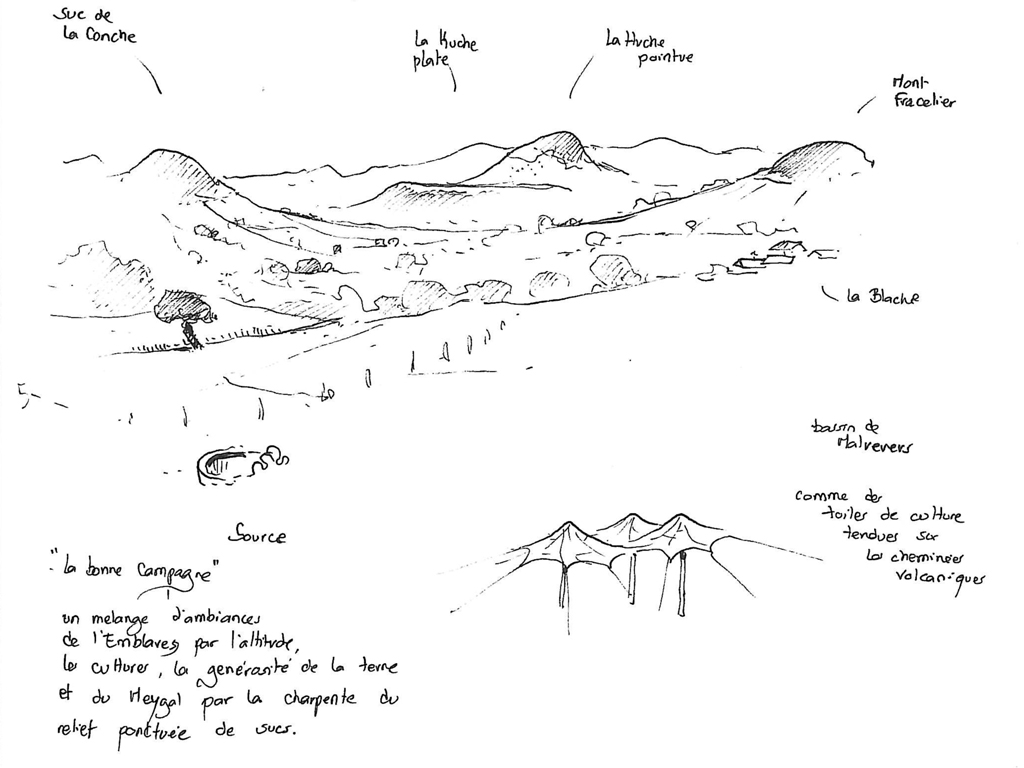 suc de
la Conche
La Huche
plate
La Huche
pointue
Mont
Fracelier
la Blache
bassin de
Malrevers
comme des
toiles de culture
tendues sur
les cheminées
volcaniques
Source
"la bonne campagne"
un mélange d'ambiances
de l'Emblavez par l'altitude,
les cultures, la générosité de la terre
et du Meygal par la charpente du
relief ponctuée de sucs.